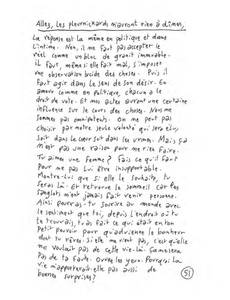 Allez, les pleurnichards n'auront rien à dîmer,
La réponse est la même en politique et dans
l'intime. Non, il ne faut pas accepter le
réel comme un bloc de granit immuable.
Il faut, même si elle fait mal, s'imposer
une observation lucide des choses. Puis, il
faut agir dans le sens de son désir. En
amour comme en politique, chacun a le
droit de vote. Et nos actes auront une certaine
influence sur le cours des choses. Nous ne
sommes pas omnipotents. On ne peut pas
choisir par notre seule volonté qui sera élu,
soit dans le cœur soit dans les urnes. Mais ça
n'est pas une raison pour ne rien faire.
Tu aimes une femme? Fais ce qu'il faut
pour ne pas lui être insupportable.
Montre-lui que si elle le souhaite, tu
seras là. Et retrouve le sommeil car les
sanglots n'ont jamais fait venir personne.
Ainsi pourras-tu sourire au monde avec
le sentiment que toi, depuis l'endroit où tu
te trouvais, tu as fait ce qui était en ton
petit pouvoir pour qu'advienne le bonheur
dont tu rêves. si elle ne vient pas, c'est qu'elle
ne voulait pas de cette vie-là. Ce ne sera
pas de ta faute. Ouvre les yeux. Pourquoi la
vie n'apporterait-elle pas aussi de
bonnes surprises?
51